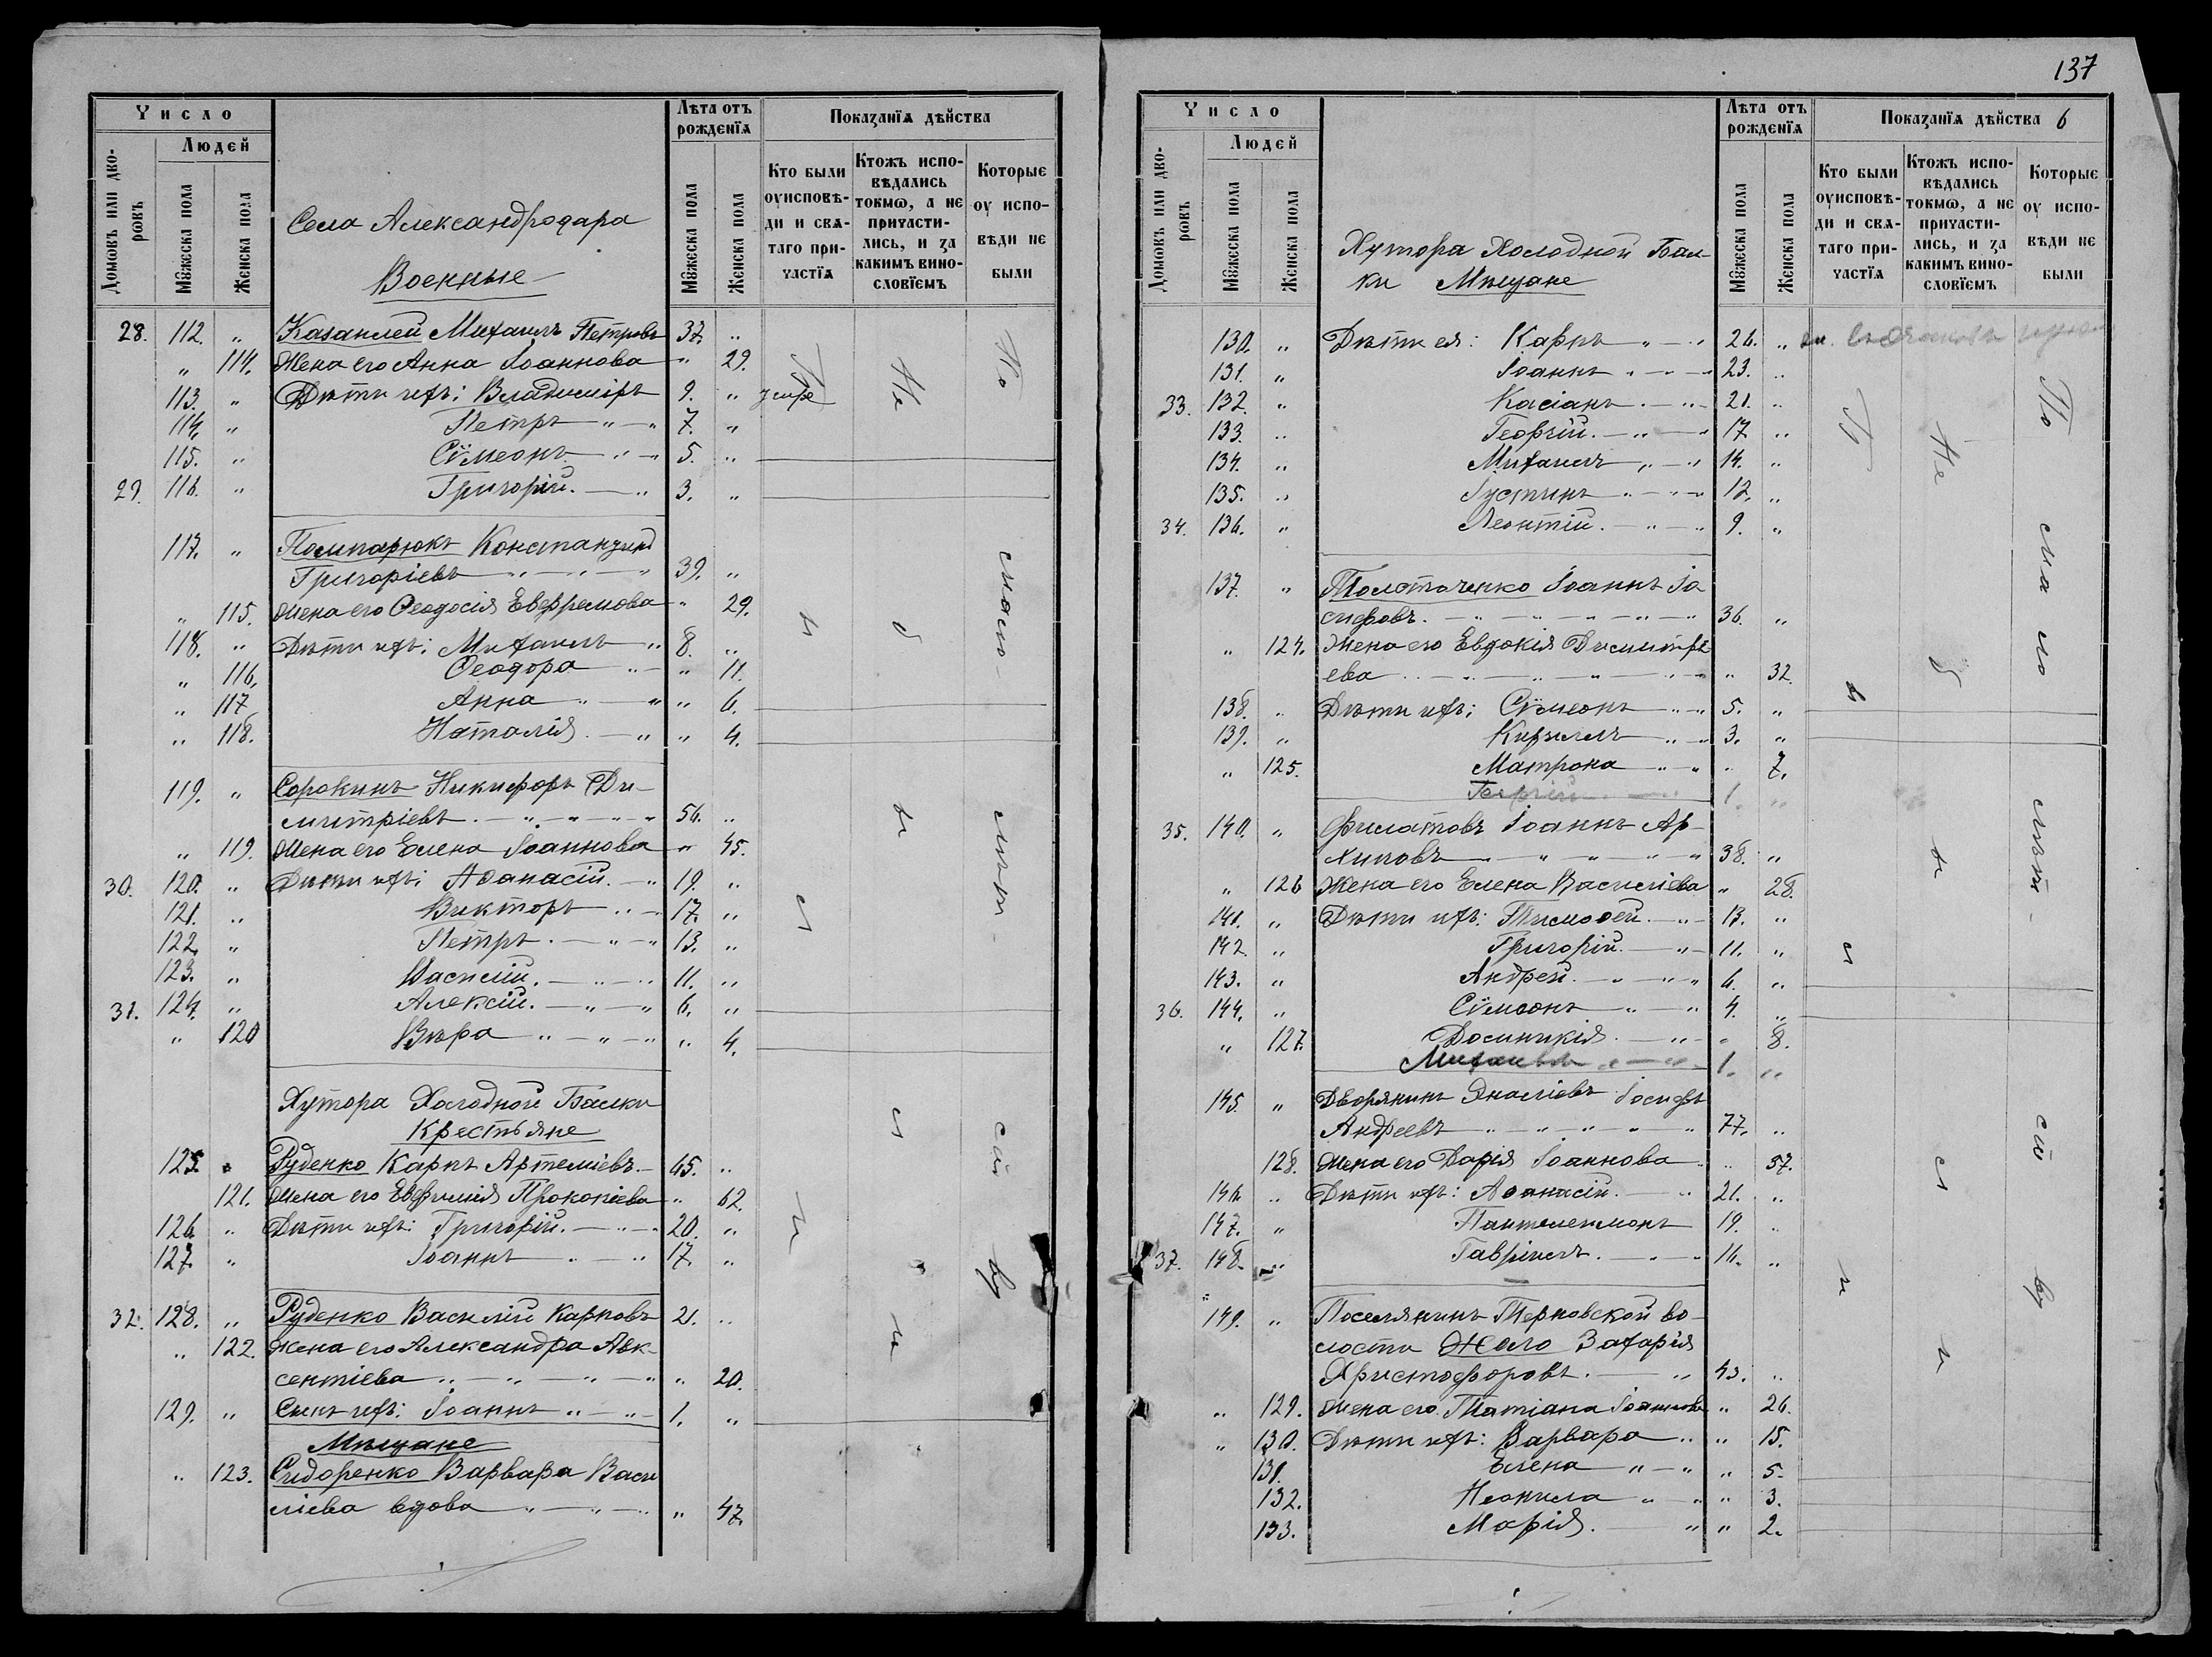 Число
Людей
Домовъ или дворовъ
Мꙋжеска пола
Женска пола
Лѣта отъ рожденїѧ
Мꙋжеска пола
Женска пола
Показанїѧ дѣйства
Кто были оуисповѣди и свѧтаго причастїѧ
Ктожъ исповѣдались токмѡ, а не причастились, и за какимъ винословїемъ
Которые оу исповѣди не были
Села Александродара
Военные
28. 112. „ Казанлей Михаилъ Петровъ 37. „
„ 114. Жена его Анна Іоаннова „ 29.
113. „ Дѣти ихъ: Владиміръ 9. „
114. „ Петръ „ — „ 7. „
115. „ Сѵмеонъ „ — „ 5. „
29. 116. „ Григорій. — „ 3. „
117. „ Константинъ
Григоріевъ „ — „ — „ 39. „
„ 115. Жена его Ѳеодосія Евфремова „ 29.
118. „ Дѣти ихъ: Михаилъ „ 8. „
„ 116. Ѳеодора „ — „ 11.
„ 117 Анна „ — „ „ 6.
„ 118. Наталія. — „ „ 4.
119. „ Сорокинъ Никифоръ Ди-
митріевъ. — „ — „ — „ 56. „
„ 119. Жена его Елена Іоаннова „ 45.
30. 120. „ Дѣти ихъ: Аѳанасій. — „ 19. „
121. „ Викторъ „ — 17. „
122. „ Петръ. — „ — „ 13. „
123. „ Василій. — „ 11. „
31. 124. „ Алексій. — „ — „ 6. „
„ 120 Вѣра „ — „ — „ „ 4.
Хутора Холодной Балки
Крестьяне
125. „ Руденко Карпъ Артеміевъ. — 45. „
121. Жена его Евфимія Прокопіева „ 62.
126 „ Дѣти ихъ: Григорій. — „ 20. „
127. „ Іоаннъ „ — „ 17. „
32. 128. „ Руденко Василій Карповъ 21. „
„ 122. Жена его Александра Авк-
сентіева „ — „ — „ — „ „ 20.
129. „ Сынъ ихъ: Іоаннъ „ — „ 1. „
Мѣщане
„ 123. Сидоренко Варвара Васи
ліева вдова „ — „ — „ „ 47.
По
Не
По
мало
лѣт
137
Число
Людей
Домовъ или дворовъ
Мꙋжеска пола
Женска пола
Лѣта отъ рожденїѧ
Мꙋжеска пола
Женска пола
Показанїѧ дѣйства 6
Кто были оуисповѣди и свѧтаго причастїѧ
Ктожъ исповѣдались токмѡ, а не причастились, и за какимъ винословїемъ
Которые оу исповѣди не были
Хутора Холодной Бал-
ки Мѣщане
130. „ Дѣти ея: Карпъ „ — „ 26. „
131. „ Іоаннъ „ — „ 23. „
33. 132. „ Касіанъ. — „ 21. „
133. „ Георгій. — „ — „ 17. „
134. „ Михаилъ „ — „ 14. „
135. „ Іустинъ „ — „ 12. „
34. 136. „ Леонтій. — „ — „ 9. „
137. „ Толстаченко Іоаннъ Іо
сифовъ. — „ — „ — „ 36. „
„ 124. Жена его Евдокія Димитрі
ева „ — „ — „ „ 32.
138. „ Дѣти ихъ: Сѵмеонъ „ — „ 5. „
139. „ Кириллъ „ — „ 3. „
„ 125. Матрона „ — „ „ 7.
Георгій 1. „
35. 140. „ Филатовъ Іоаннъ Ар-
хиповъ — „ — „ — „ 38. „
„ 126 Жена его Елена Василіева „ 28.
141. „ Дѣти ихъ: Тимоѳей. — „ 13. „
142. „ Григорій. — „ 11. „
143. „ Андрей. — „ — „ 6. „
36. 144. „ Сѵмеонъ „ — „ 4. „
„ 127. Домникія. — „ „ 8.
Михаилъ „ — „ 1. „
145. „ Дворянинъ Іосифъ
Андреевъ „ — „ — „ — „ 77. „
128. Жена его Дарія Іоаннова „ 57.
146. „ Дѣти ихъ: Аѳанасій. — „ 21. „
147. „ Пантелеимонъ 19. „
37. 148. „ Гавріилъ. — „ — „ 16. „
149. „ Поселянинъ Терновской во-
лости Жело Захарія
Христофоровъ. — „ 43. „
„ 129. Жена его Татіана Іоаннова „ 26.
„ 130. Дѣти ихъ: Варвара „ „ 15.
131. Елена „ — „ „ 5.
132. Неонила „ — „ „ 3.
133. Марія. — „ „ 2.
По
Не
По
мало
лѣт